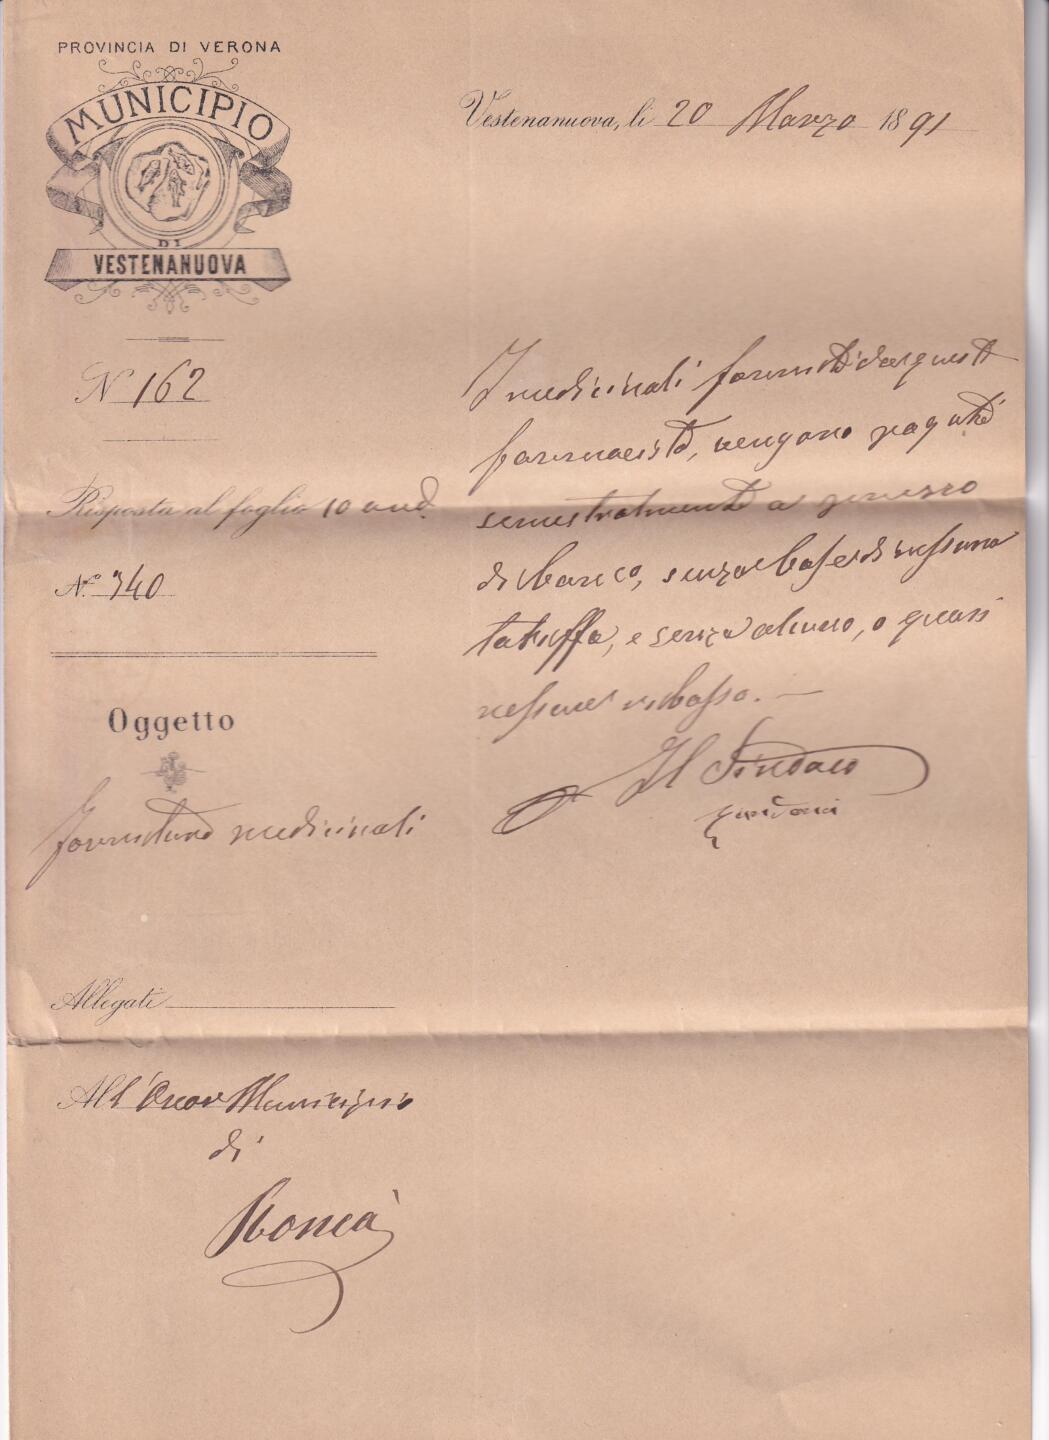 PROVINCIA DI VERONA
MUNICIPIO
DI
VESTENANUOVA
Vestenanuova, li 20 Marzo 1891
N. 162
Risposta al foglio 10 and.
N.° 340
Oggetto
Fornitura medicinali
Allegati
All'Onor Municipio
di
Roncà
I medicinali forniti da questi
farmacisti, vengono pagati
semestralmente a prezzo
di banco, senza base di nessuna
tariffa, e senza alcuno, o quasi
nessun ribasso. —
Il Sindaco